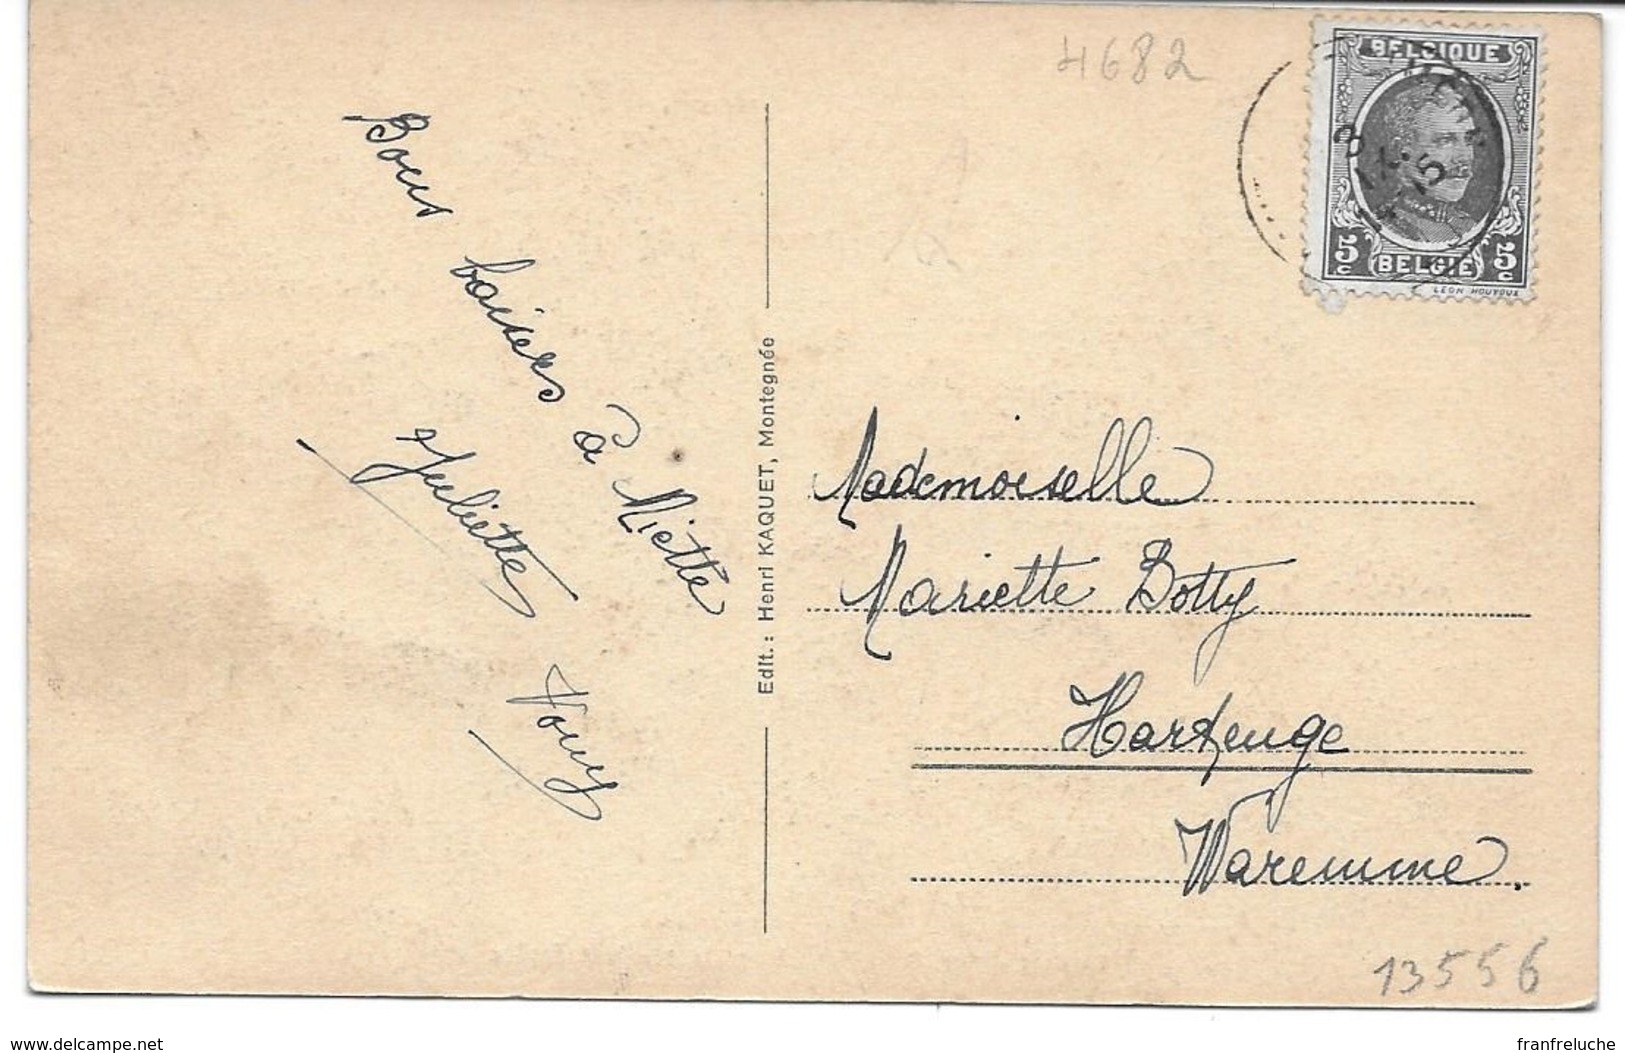 4682
BELGIQUE
5c 5c
BELGIË
LÉON HOUYOUX
Bons baisers à Miette
Juliette
Tony
Edit. : Henri KAQUET, Montegnée
Mademoiselle
Mariette Botty
Waremme.
13556
www.delcampe.net
franfreluche